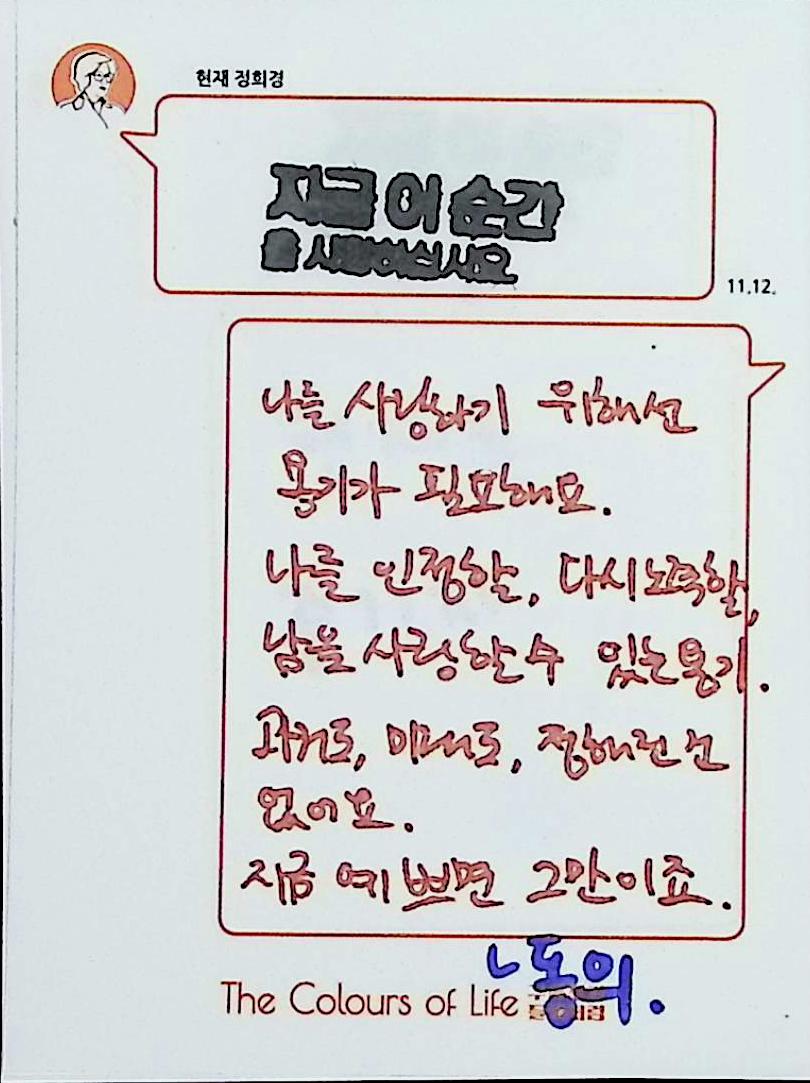 현재 정희경
지금 이 순간
을 사랑하십시오
11.12.
나를 사랑하기 위해선
용기가 필요해요.
나를 인정할, 다시 노력할,
남을 사랑할 수 있는 용기.
과거도, 미래도, 정해진 건
없어요.
지금 예쁘면 그만이죠.
ㄴ동의.
The Colours of Life